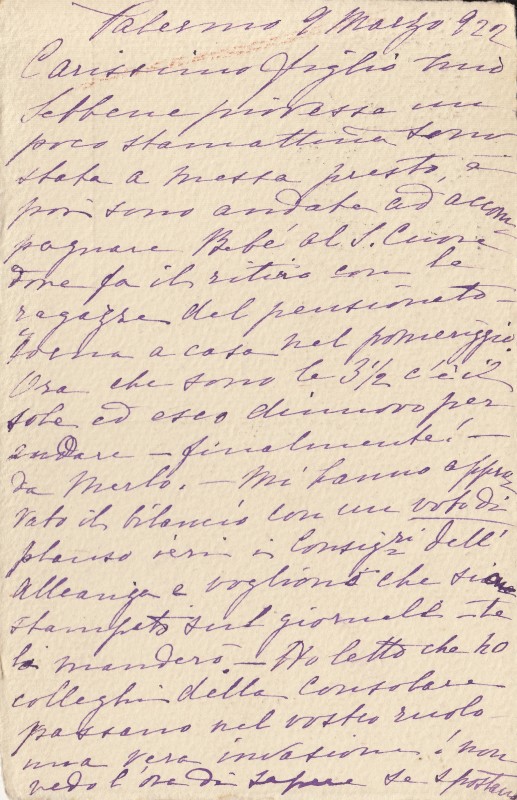 Palermo 9 Marzo 922
Carissimo figlio mio
Sebbene piovesse un
poco stamattina sono
stata a messa presto, e
poi sono andata ad accom-
pagnare Bebé al S. Cuore
dove fa il ritiro con le
ragazze del pensionato -
Torna a casa nel pomeriggio.
Ora che sono le 3½ c'è il
sole ed esco dinuovo per
andare - finalmente! -
da Merlo. - Mi hanno appro-
vato il bilancio con un voto di
plauso ieri i Consigri dell'
Alleanza e vogliono che sia
stampato sul giornale - te
lo manderò - Ho letto che 40
colleghi della Consolare
passano nel vostro ruolo
una vera invasione! non
vedo l'ora di sapere se spostano